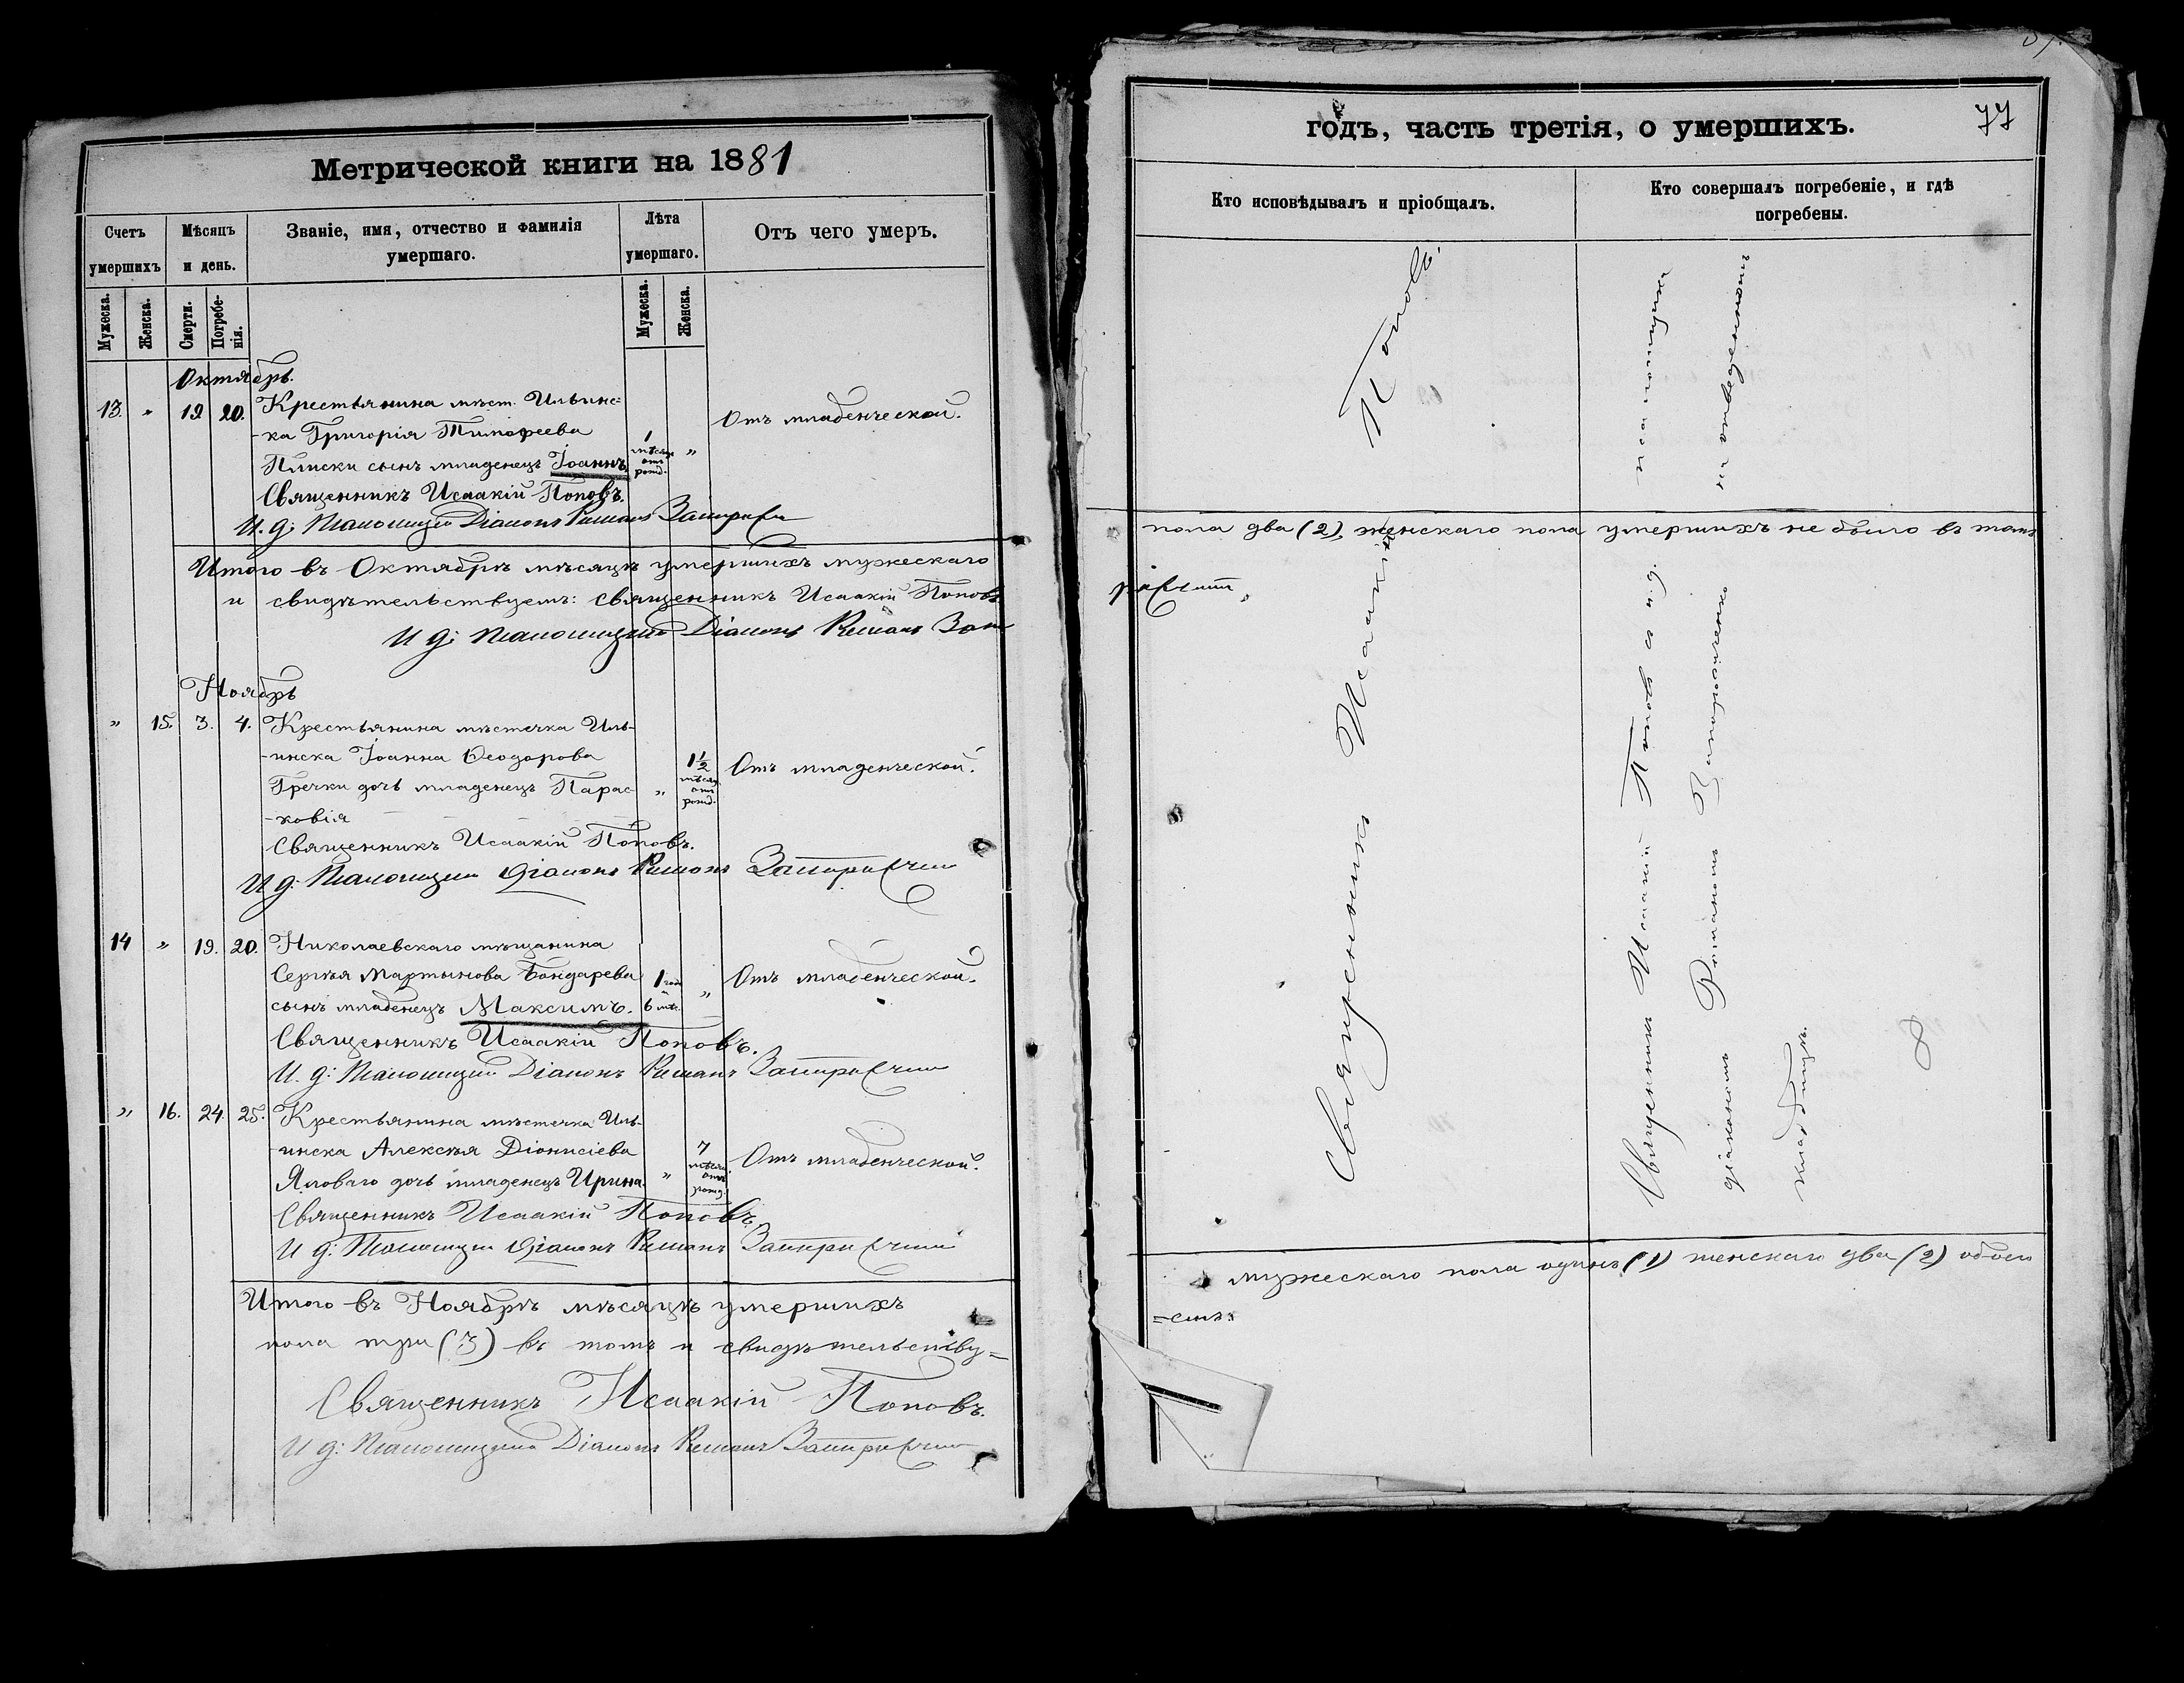 Метрической книги на 1881
Счетъ умершихъ
Мѣсяцъ и день.
Званіе, имя, отчество и фамилія умершаго.
Лѣта умершаго.
Отъ чего умеръ.
Мужеска.
Женска.
Смерти.
Погребе-
нія.
Мужеска.
Женска.
Октябрь.
13. " 19 20. Крестьянина мѣст. Ильинс=
-ка Григорія Тимофеева
Плиски сынъ младенецъ Іоаннъ.
1 мѣсяц отъ рожд. "
Отъ младенческой.
Священникъ Исаакій Поповъ.
И. д: Діаконъ Романъ
Итого въ Октябрѣ мѣсяцѣ умершихъ мужескаго
и свидѣтельствуемъ: священникъ Исаакій Поповъ
И д: Діаконъ Романъ
Ноябрь
" 15. 3. 4. Крестьянина мѣстечка Иль-
-инска Іоанна Ѳеодорова
Гречки дочь младенецъ Парас-
-ковія
" 1½ мѣсяц. отъ рожд.
Отъ младенческой.
Священникъ Исаакій Поповъ.
И д: Діаконъ Романъ
14 " 19. 20. Николаевскаго мѣщанина
Сергѣя Мартынова Бондарева
сынъ младенецъ Максимъ.
1 годъ и 6 мѣс. "
Отъ младенческой.
Священникъ Исаакій Поповъ.
И. д: Діаконъ Романъ
" 16. 24. 25. Крестьянина мѣстечка Иль-
-инска Алексѣя Діонисіева
Яловаго дочь младенецъ Ирина.
" 7 мѣсяц. отъ рожд.
Отъ младенческой.
Священникъ Исаакій Поповъ.
И д: Діаконъ Романъ
Итого въ Ноябрѣ мѣсяцѣ умершихъ
пола три (3) въ томъ и свидѣтельству=
Священникъ Исаакій Поповъ.
И д: Діаконъ Романъ
годъ, часть третія, о умершихъ.
77
Кто исповѣдывалъ и пріобщалъ.
Кто совершалъ погребеніе, и гдѣ
погребены.
Священникъ Исаакій Поповъ.
Священникъ Исаакій Поповъ съ и. д.
псаломщика
діакономъ Романомъ
на отведенномъ
кладбищѣ.
пола два (2), женскаго пола умершихъ не было въ томъ
мужескаго пола одинъ (1) женскаго два (2) обоего
=емъ: